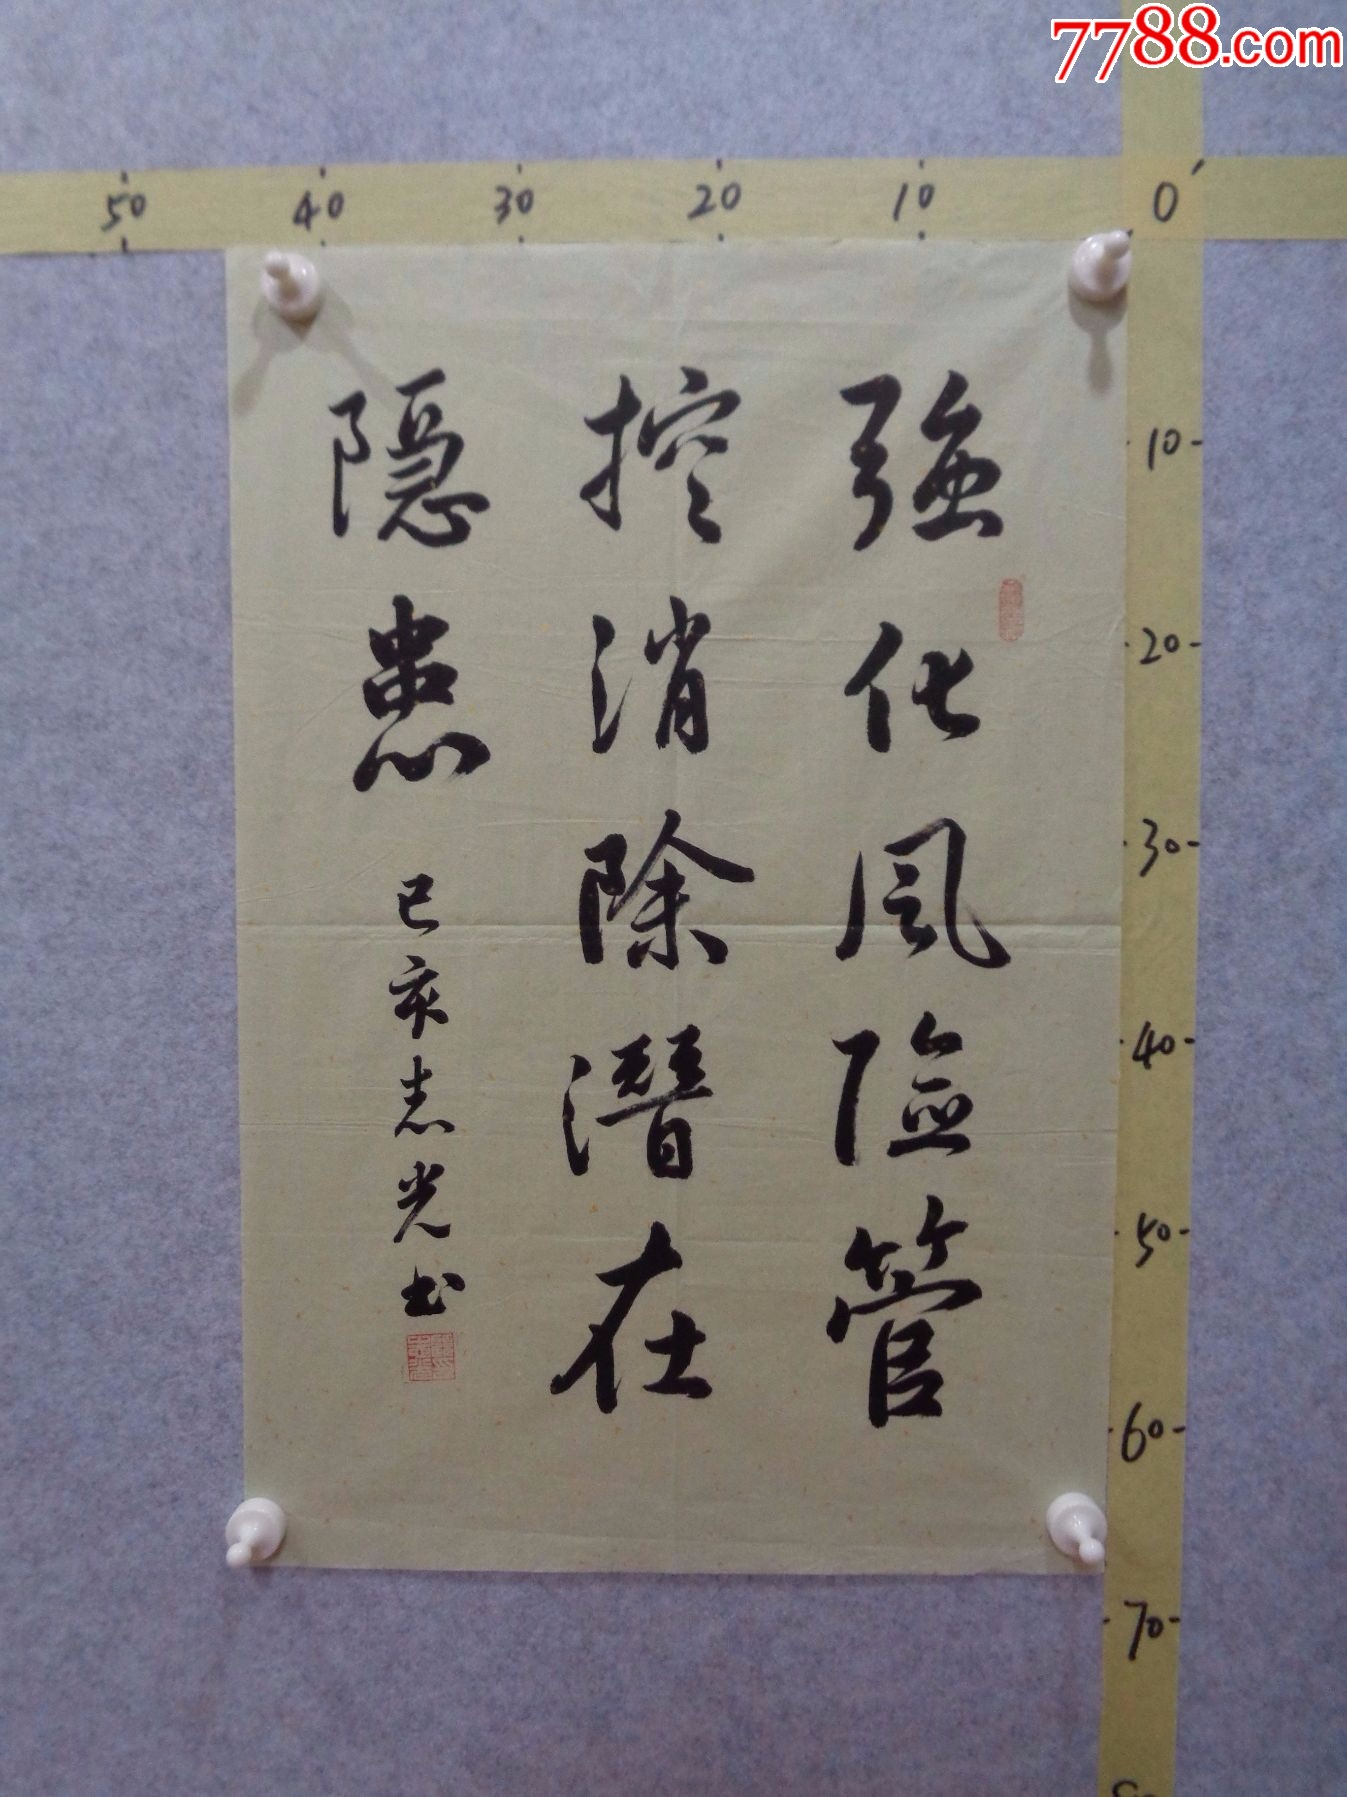 7788.com
50 40 30 20 10 0
強化风险管
控消除潛在
隐患
己亥志光书
10
20
30
40
50
60
70